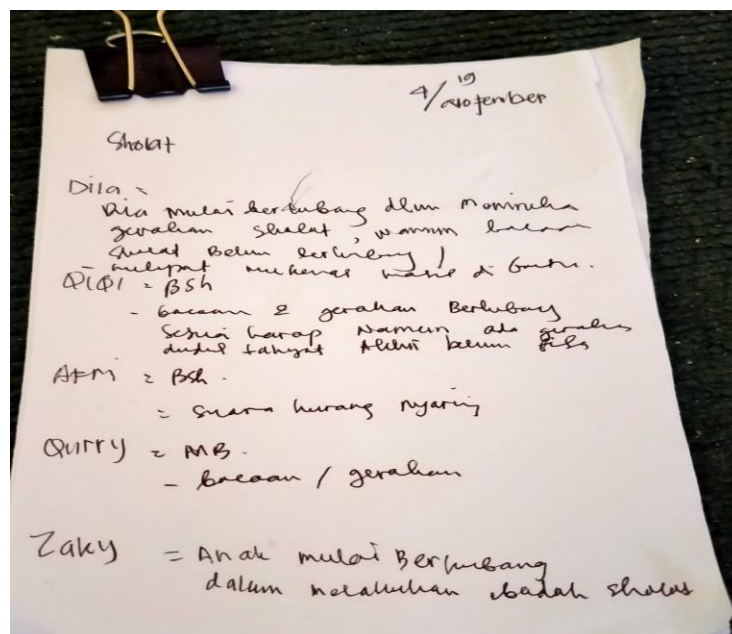 4/19 November
Sholat
Dila =
Dia mulai berkubang dlm Meniruka
gerakan sholat, namun bacaan
sholat Belum berkubang /
melipat mukenas masih di bantu.
QiQi = BSh
- bacaan & gerakan Berkubang
Sesuai harap Namun ada gerakan
duduk tahyat Akhir belum bisa
AFMi = BSh.
= suara kurang nyaring
Qurry = MB.
- bacaan / gerakan
Zaky = Anak mulai Berkubang
dalam melakukan ibadah sholat